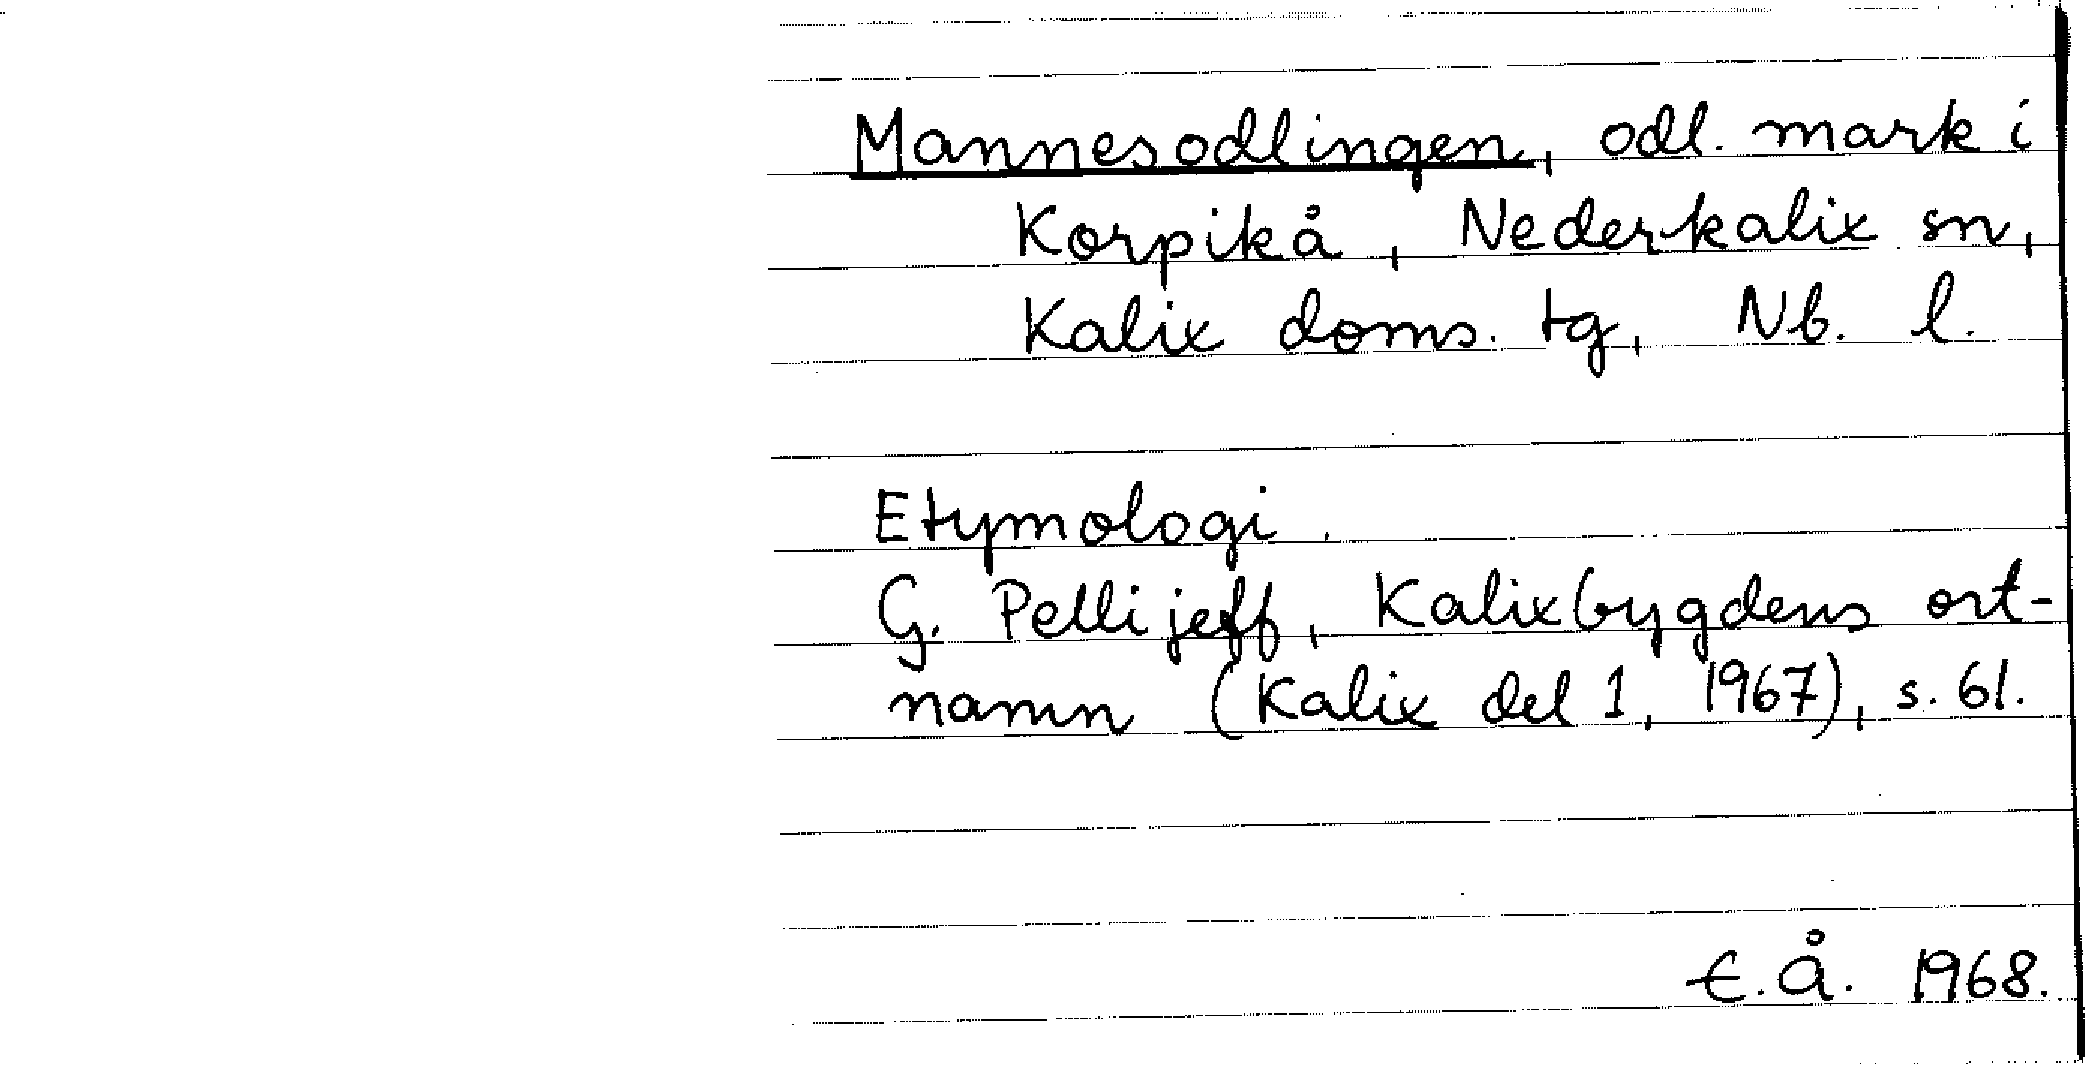 Mannesodlingen, odl. mark i
Korpikå, Nederkalix sn,
Kalix doms. tg, Nb. l.
Etymologi.
G. Pellijeff, Kalixbygdens ort-
namn (Kalix del 1, 1967), s. 61.
E.Å. 1968.